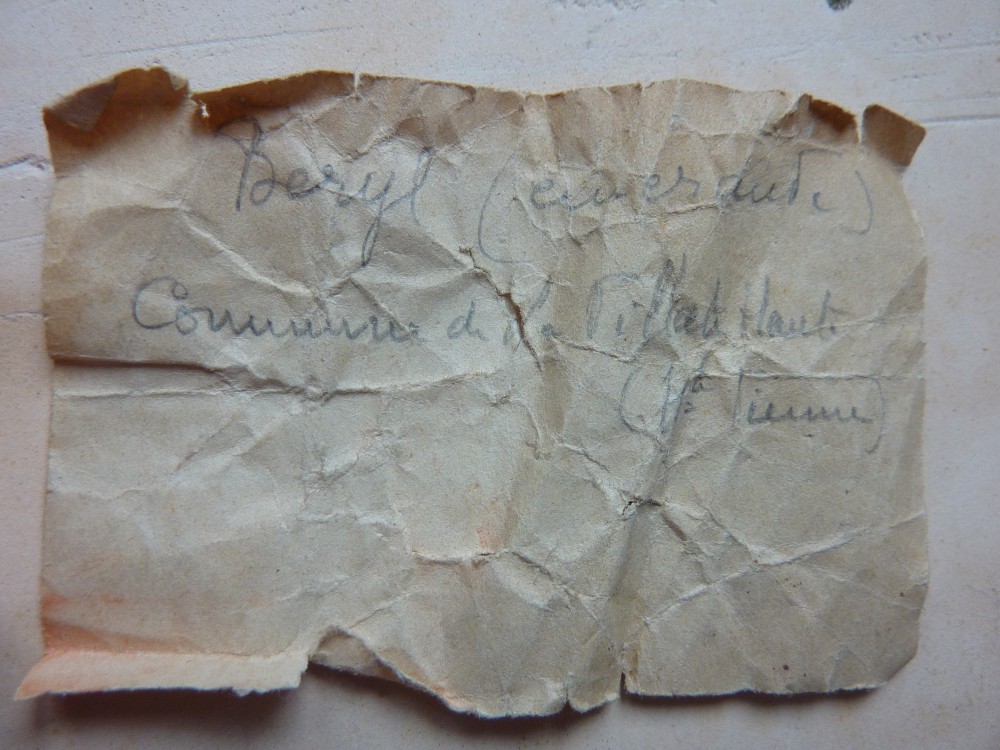 Beryl (émeraude)
Commune de la Villate Haute
(Hte Vienne)